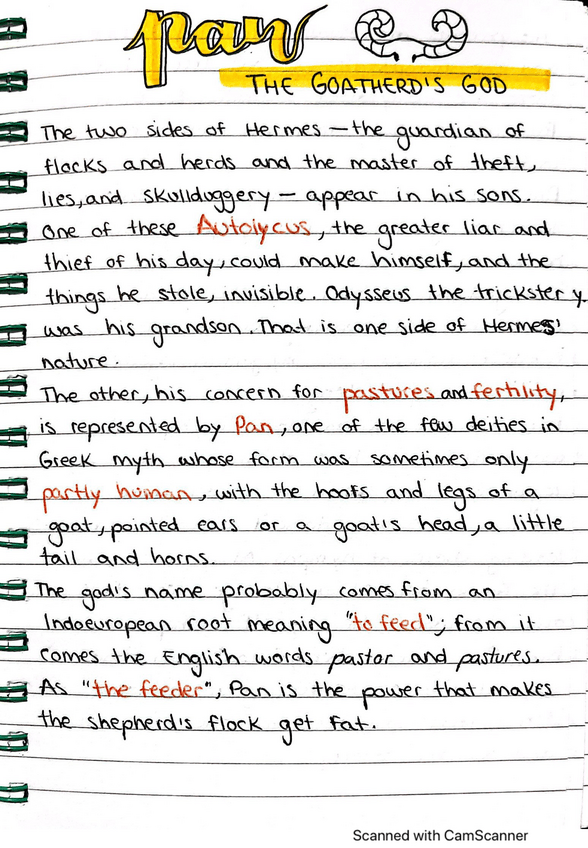 pan
THE GOATHERD'S GOD
The two sides of Hermes — the guardian of
flocks and herds and the master of theft,
lies, and skullduggery — appear in his sons.
One of these Autoiycus, the greater liar and
thief of his day, could make himself, and the
things he stole, invisible. Odysseus the trickster y.
was his grandson. That is one side of Hermes'
nature.
The other, his concern for pastures and fertility,
is represented by Pan, one of the few deities in
Greek myth whose form was sometimes only
partly human, with the hoofs and legs of a
goat, pointed ears or a goat's head, a little
tail and horns.
The god's name probably comes from an
Indoeuropean root meaning "to feed"; from it
comes the English words pastor and pastures.
As "the feeder", Pan is the power that makes
the shepherd's flock get fat.
Scanned with CamScanner